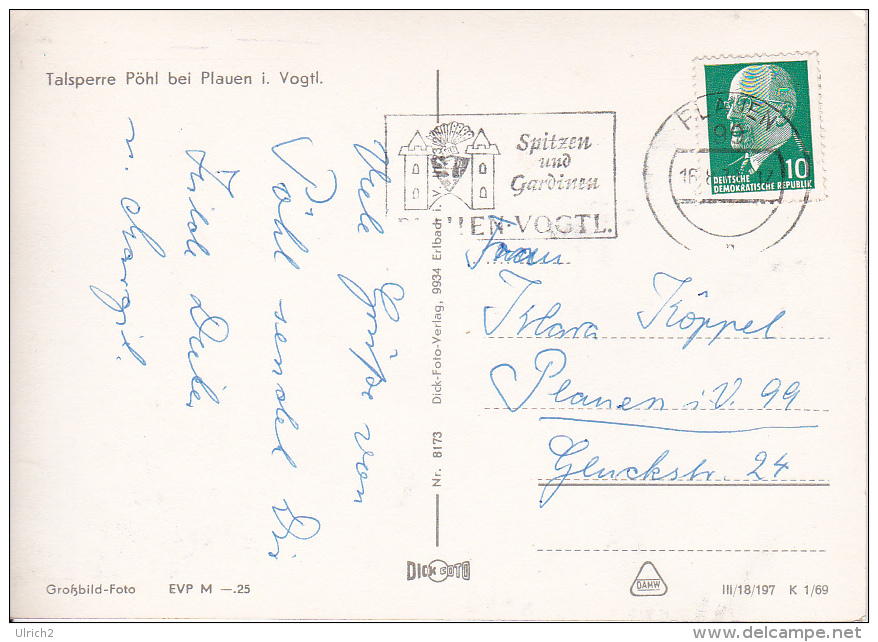 Talsperre Pöhl bei Plauen i. Vogtl.
Viele Grüße von
Pöhl sendet Dir
u. Margit.
Spitzen
und
Gardinen
EN-VOGTL.
PLAUEN
99
16.8.
10
DEUTSCHE
DEMOKRATISCHE REPUBLIK
Frau
Klara Köppel
Plauen i.V. 99
Gluckstr. 24
Nr. 8173 Dick-Foto-Verlag, 9934 Erlbach i. V.
DICK FOTO
Großbild-Foto EVP M —.25
DAMW
III/18/197 K 1/69
Ulrich2
www.delcampe.net